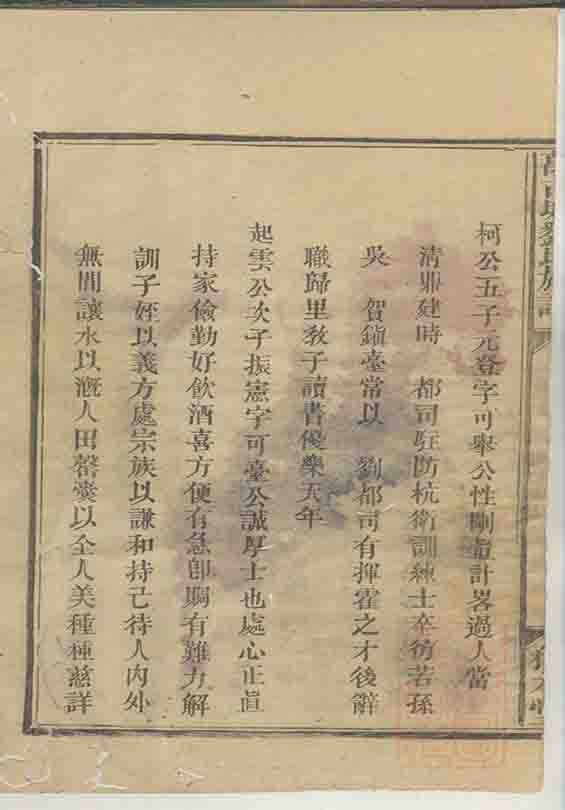 柯公五子元登字可舉公性剛直計畧過人當
清鼎建時　都司駐防杭衛訓練士卒彷若孫
吳　賀鎮臺常以　劉都司有揮霍之才後辭
職歸里敎子讀書優樂天年
起雲公次子振憲字可臺公誠厚士也處心正直
持家儉勤好飲酒喜方便有急卽賙有難力解
訓子姪以義方處宗族以謙和持己待人内外
無間讓水以漑人田罄囊以全人美種種慈詳